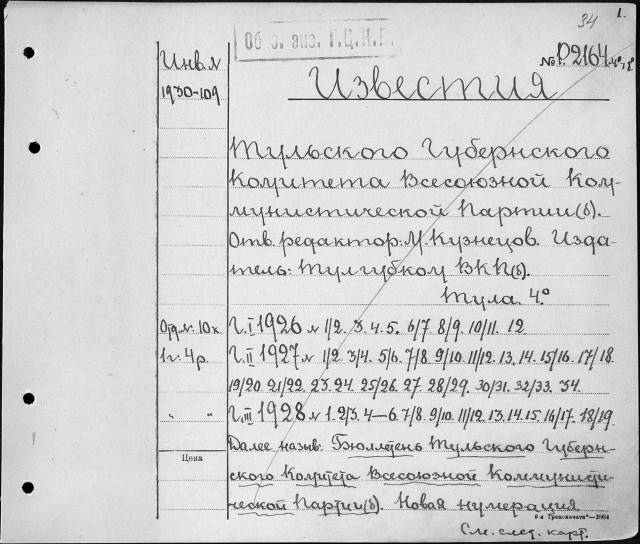 34 1.
Обр. экз. Г.Ц.К.П.
Инв.№ № P2164 4°
1930-109
Известия
Тульского Губернского
Комитета Всесоюзной Ком-
мунистической Партии(б).
Отв. редактор: М. Кузнецов. Изда-
тель: Тулгубком ВКП(б).
Тула. 4°
Отд.№ 10к. Г. I 1926 № 1/2. 3. 4. 5. 6/7. 8/9. 10/11. 12.
1г. 4р. Г. II 1927 № 1/2. 3/4. 5/6. 7/8. 9/10. 11/12. 13. 14. 15/16. 17/18
19/20. 21/22. 23. 24. 25/26. 27. 28/29. 30/31. 32/33. 34.
„ „ Г. III 1928 № 1. 2/3. 4—6. 7/8. 9/10. 11/12. 13. 14. 15. 16/17. 18/19.
Далее назыв. Бюллетень Тульского Губерн-
Цена
ского Комитета Всесоюзной Коммунисти-
ческой Партии(б). Новая нумерация
См. след. карт.